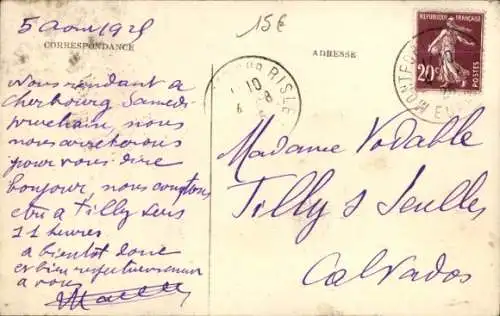 5 Aout 1928
15€
CORRESPONDANCE
ADRESSE
Nous rendant a
Cherbourg Samedi
prochain, nous
nous arreterons
pour vous dire
bonjour, nous comptons
etre a Tilly vers
11 heures.
a bientot donc
et bien respectueusement
a vous
RISLE
10
RÉPUBLIQUE FRANÇAISE
20c
POSTES
MONTFORT
Madame Vodable
Tilly s Seulles
Calvados